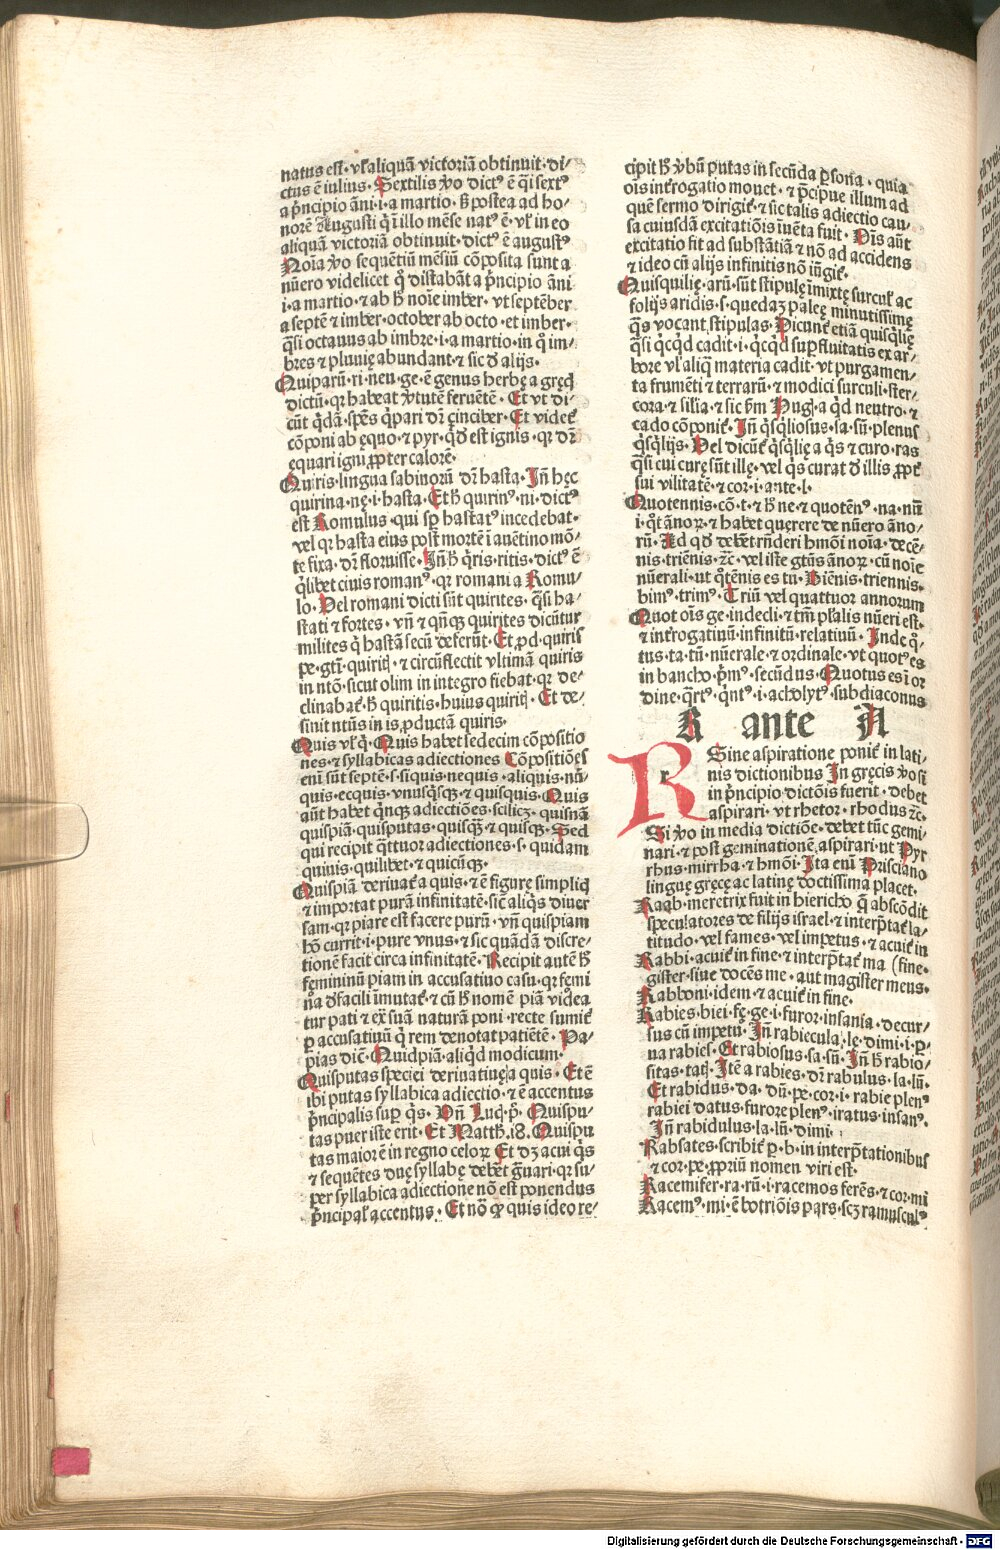 natus est. vl' aliquā victoriā obtinuit. di/
ctus ē iulius. Sextilis ꝟo dictꝰ ē q̇ i sextꝰ
a pͥncipio āni .i. a martio. ß postea ad ho-
norē Augusti q̇ i illo mēse natꝰ ē. vl' in eo
aliquā victoriā obtinuit. dictꝰ ē augustꝰ
Noīa ꝟo sequētiū mēsiū cōposita sunt a
nūero videlicet qͦ distabāt a pͥncipio āni
.i. a martio. ⁊ ab ħ noīe imber. vt septēber
a septē ⁊ imber. october ab octo. et imber.
q̄si octauus ab imbre .i. a martio. in qͦ im-
bres ⁊ pluuię abundant. ⁊ sic ď alijs.
Quiparū. ri. neu. ge. ē genus herbę a gręď
dictū. qꝛ habeat ꝟtutē feruētē. Et vt di-
cūt q̇dā. spēs q̇pari dr̄ cinciber. Et videt̉
cōponi ab ęquo. ⁊ pyr. qď est ignis. qꝛ dr̄
equari igni ꝓpter calorē.
Quiris. lingua sabinorū dr̄ hasta. Jn̄ hęc
quirina. nę. i. hasta. Et ħ quirinꝰ. ni. dictꝰ
est Romulus. qui sꝑ hastatꝰ incedebat.
vel qꝛ hasta eius post mortē i auētino mō-
te fixa. dr̄ floruisse. Jn̄ ħ q̇ris. ritis. dictꝰ ē
q̇libet ciuis romanꝰ. qꝛ romani a Romu-
lo. Vel romani dicti sūt quirites. q̄si ha-
stati ⁊ fortes. vn̄ ⁊ qn̄qꝫ quirites dicūtur
milites q̇ hastā secū deferūt. Et ꝓd. quiris
pe. gtī. quiritꝭ. ⁊ circūflectit vltimā quiris
in ntō. sicut olim in integro fiebat. qꝛ de-
clinabat̉ ħ quiritis. huius quiritꝭ. Et de-
sinit ntūs in is. ꝓductā quiris.
Quis vl' q̇. Quis habet sedecim cōpositio
nes. ⁊ syllabicas adiectiones Cōpositiōes
eni sūt septē. s. siquis. nequis. aliquis. nū-
quis. ecquis. vnusq̇sqꝫ. ⁊ quisquis. Quis
aūt habet qn̄qꝫ adiectiōes. scilicꝫ. quisnā
quispiā. quisputas. quisqꝫ. ⁊ quisqꝫ. Sed
qui recipit q̄ttuor adiectiones. s. quidam
quiuis. quilibet. ⁊ quicūqꝫ.
Quispiā deriuat̉ a quis. ⁊ ē figurę simpliꝭ
⁊ importat purā infinitatē. sic̄ aliq̇s diuer
sam. qꝛ piare est facere purū. vn̄ quispiam
hō currit. i. pure vnus. ⁊ sic quādā discre-
tionē facit circa infinitatē. Recipit autē ħ
femininū piam in accusatiuo casu. qꝛ femi
nīa ď facili imutat̉. ⁊ cū ħ nomē piā videa
tur pati ⁊ ex suā naturā poni. recte sumit̉
ꝑ accusatiuū q̇ rem denotat patiētē. Pa-
pias dic̄. Quidpiā. aliqd̄ modicum.
Quisputas speciei deriuatiuę a quis. Et ē
ibi putas syllabica adiectio. ⁊ ē accentus
pͥncipalis suꝑ q̇s. Vn̄ Luc̄. pͦ. Quispu-
tas puer iste erit. Et Matth. 18. Quispu
tas maior ē in regno celoꝝ. Et dꝫ acui q̇s
⁊ sequētes duę syllabę debēt g̃uari. qꝛ su-
per syllabica adiectione nō est ponendus
pͥncipal' accentus. Et nō qꝙ quis ideo re-
cipit ħ ꝟbū putas in secūda ꝑsona. quia
oīs int̉rogatio mouet. ⁊ pͥcipue illum ad
quē sermo dirigit̉. ⁊ sic talis adiectio cau-
sa cuiusdā excitatiōis iuēta fuit. Nīs aūt
excitatio fit ad substātiā ⁊ nō ad accidens
⁊ ideo cū alijs infinitis nō iūgit̉.
Quisquilię. arū. sūt stipulę imixtę surcul' ac
folijs aridis. s. quedaꝫ palęę minutissimę
q̄s vocant stipulas. Dicunt̉ etiā quisq̇lię
q̄si q̇cqd̄ cadit. i. q̇cqd̄ suꝑfluitatis ex ar/
bore vl' aliq̄ materia cadit. vt purgamen/
ta frumēti ⁊ terrarū. ⁊ modici surculi. ster/
cora. ⁊ silia. ⁊ sic ẜm Hug. a q̇d neutro. ⁊
cado cōponit̉. Jn̄ q̇sq̇liosus. sa. sū. plenus
q̇sq̇lijs. Vel dicūt̉ q̇sq̇lię a q̇s ⁊ curo. ras
q̄si cui curę sūt illę. vel q̇s curat ď illis ꝓpt̉
sui vilitatē. ⁊ cor. i. ante. l.
Quotennis. cō. t. ⁊ ħ ne. ⁊ quotēnꝰ. na. nū
.i. qͦt ānoꝝ. ⁊ habet quęrere de nūero āno-
rū. Ad qď debēt rn̄deri hmōi noīa. decē-
nis. triēnis. ⁊c̄. vel iste gtūs ānoꝝ. cū noīe
nūerali. ut qͦtēnis es tu. Biēnis. triennis.
bimꝰ. trimꝰ. Triū vel quattuor annorum
Quot oīs ge. indecli. ⁊ tm̄ pl'alis nūeri est.
⁊ int̉rogatiuū. infinitū. relatiuū. Jnde qͦ.
tus. ta. tū. nūerale. ⁊ ordinale. vt quotꝰ es
in bancho. pͥmꝰ. secūdus. Quotus es i or
dine. q̄rtꝰ. qͥntꝰ. i. acholytꝰ. subdiaconus
R ante A
R Sine aspiratione ponit̉ in lati-
nis dictionibus Jn gręcis ꝟo si
in pͥncipio dictōis fuerit. debet
aspirari. vt rhetor. rhodus ⁊c̄.
Si ꝟo in media dictiōe. debet tūc gemi-
nari. ⁊ post geminationē aspirari. ut Pyr
rhus. mirrha. ⁊ hmōi. Ita enī Prisciano
linguę gręcę ac latinę doctissimo placet.
Raab. meretrix fuit in hiericho. q̄ abscōdit
speculatores de filijs israel. ⁊ interp̄tat̉ la-
titudo. vel fames. vel impetus. ⁊ acuit̉ in
Rabbi. acuit̉ in fine. ⁊ interp̄tat̉ ma (fine.
gister. siue docēs me. aut magister meus.
Rabboni. idem. ⁊ acuit̉ in fine.
Rabies. biei. fę. ge. i. furor. insania. decur/
sus cū impetu. Jn̄ rabiecula. lę. dimi. i. ꝑ-
ua rabies. Et rabiosus. sa. sū. Jn̄ ħ rabio-
sitas. tatꝭ. Itē a rabies. dr̄ rabulus. la. lū.
Et rabidus. da. dū. pe. cor. i. rabie plenꝰ
rabiei datus. furore plenꝰ. iratus. insanꝰ.
Jn̄ rabidulus. la. lū. dimi.
Rabsates. scribit̉ ꝑ. b. in interp̄tationibus
⁊ cor. pe. ꝓpriū nomen viri est.
Racemifer. ra. rū. i. racemos ferēs. ⁊ cor. mi
Racemꝰ. mi. ē botriōis pars. scꝫ ramusculꝰ
Digitalisierung gefördert durch die Deutsche Forschungsgemeinschaft - DFG